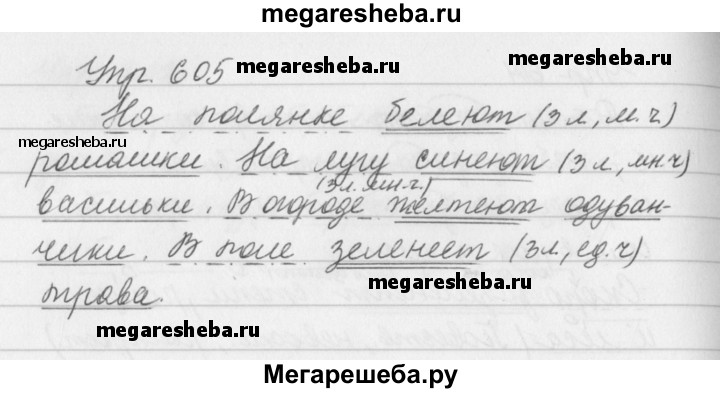 megaresheba.ru
Упр. 605 megaresheba.ru megaresheba.ru
На полянке белеют (3 л, м.ч)
megaresheba.ru
ромашки. На лугу синеют (3 л, мн.ч)
(3л. мн.ч.)
васильки. В огороде желтеют одуван-
чики. В поле зеленеет (3л, ед.ч)
megaresheba.ru
трава.
megaresheba.ru
Мегарешеба.ру